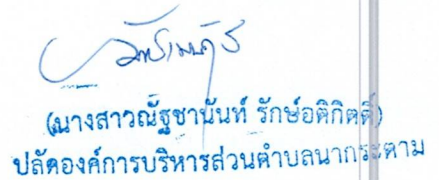 (นางสาวณัฐชานันท์ รักษ์อติกิตติ์)
ปลัดองค์การบริหารส่วนตำบลนากระตาม